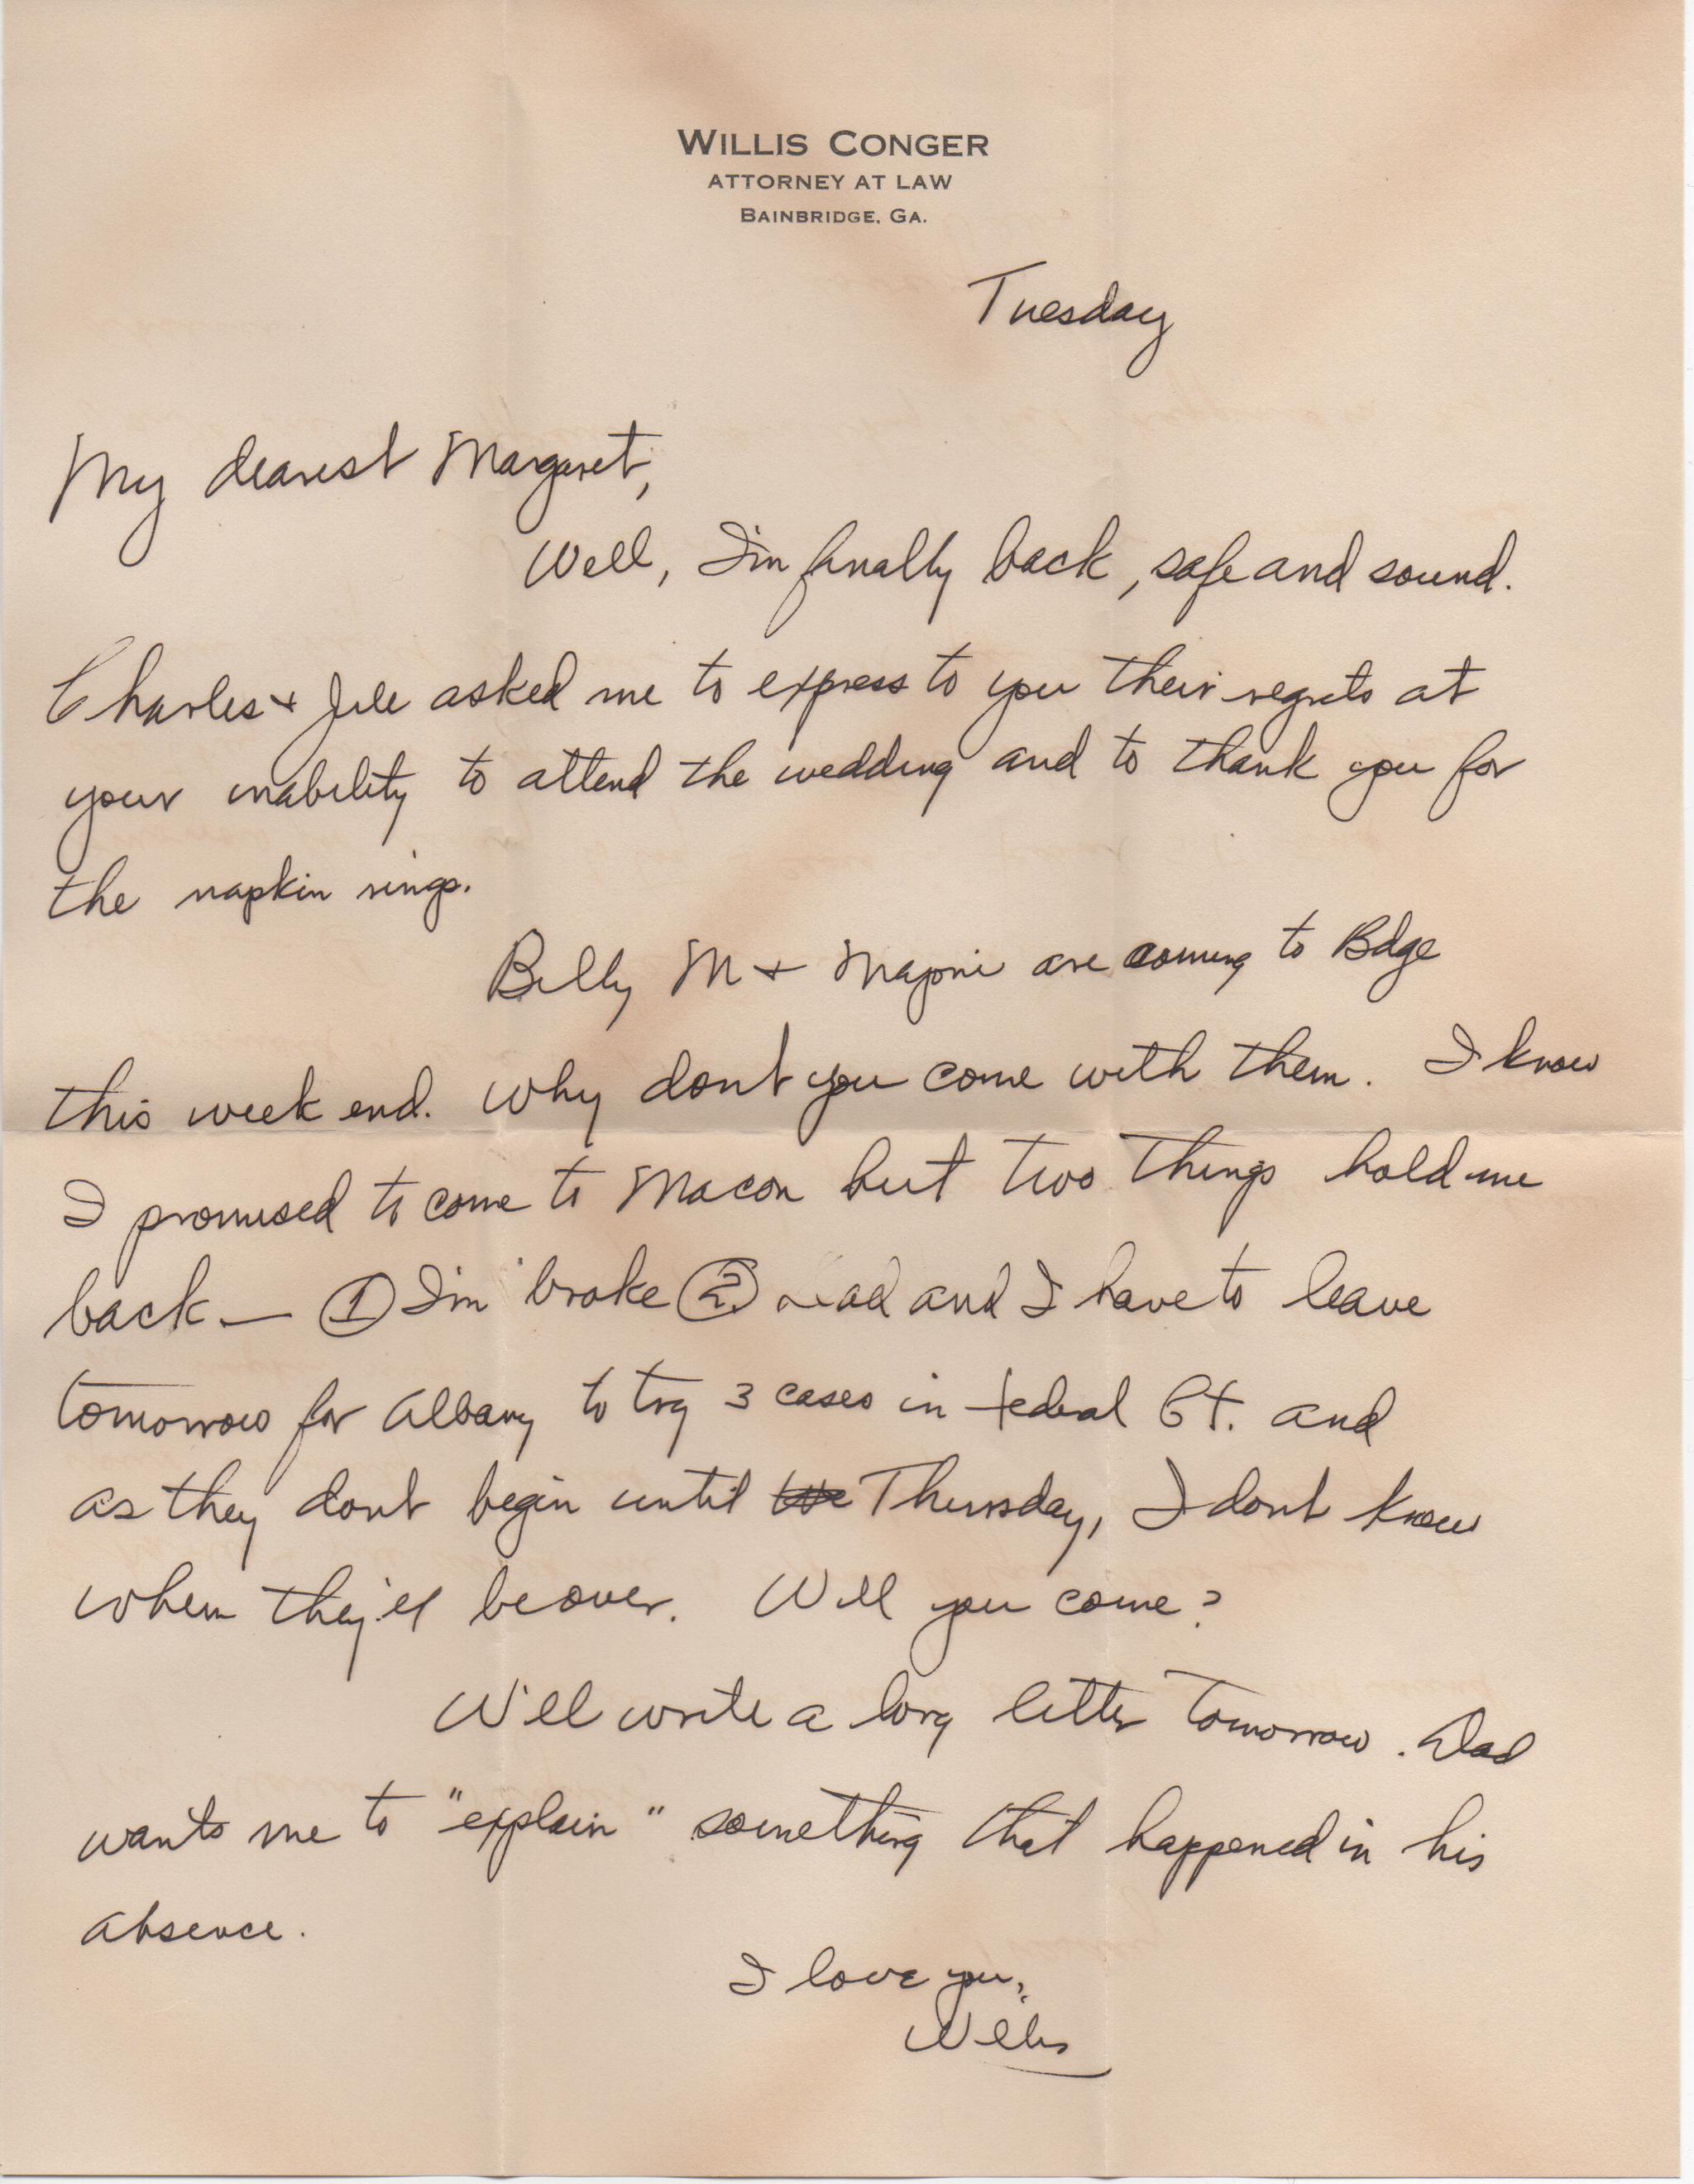 WILLIS CONGER
ATTORNEY AT LAW
BAINBRIDGE, GA.
Tuesday
My dearest Margaret,
Well, I'm finally back, safe and sound.
Charles + Jule asked me to express to you their regrets at
your inability to attend the wedding and to thank you for
the napkin rings.
Billy M + are coming to Bdge
this week end. Why dont you come with them. I know
I promised to come to Macon but two things hold me
back — ① I'm broke ② Dad and I have to leave
tomorrow for Albany to try 3 cases in federal Ct. and
as they dont begin until Thursday, I dont know
when they'll be over. Will you come?
Will write a long letter tomorrow. Dad
wants me to "explain" something that happened in his
absence.
I love you,
Willis